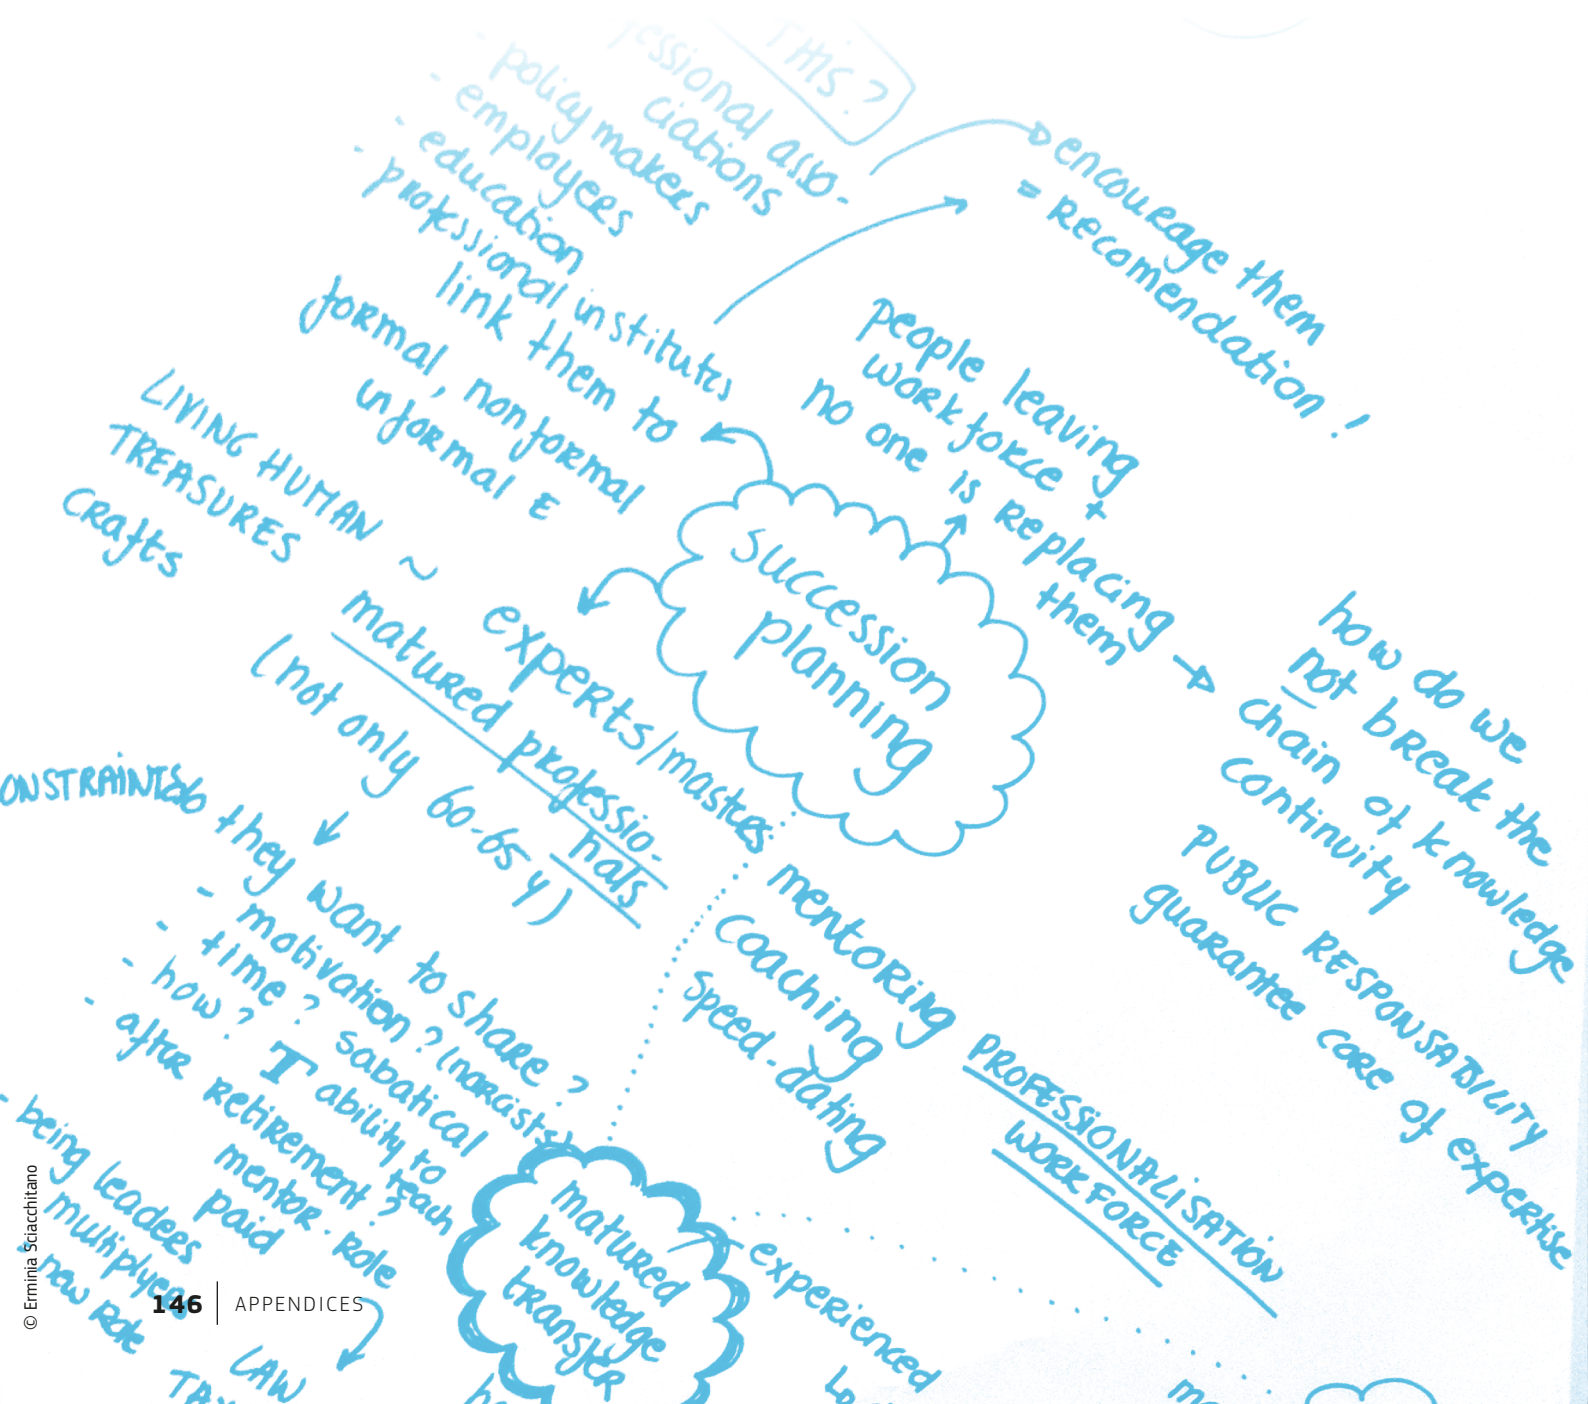 THIS?
essional asso-
ciations
- policy makers
- employers
- education
- professional institutes
link them to
formal, non formal
informal E
encourage them
= RECOMENDATION!
people leaving
workforce +
no one is replacing
them
how do we
not break the
chain of knowledge
continuity
PUBLIC RESPONSABILITY
guarantee core of expertise
succession
planning
LIVING HUMAN
TREASURES
CRAfts
~ experts/masters
matured professio-
nals
(not only 60-65 y)
ONSTRAINTS
do they want to share?
- motivation? (narcists)
- time? sabatical
- how? ability to
teach
- after retirement?
mentor-role
paid
- being leaders
multiplyers
- new role
LAW
mentoring
coaching
speed-dating
PROFESSIONALISATION
WORKFORCE
matured
knowledge
transfer
experienced
© Erminia Sciacchitano
146 APPENDICES